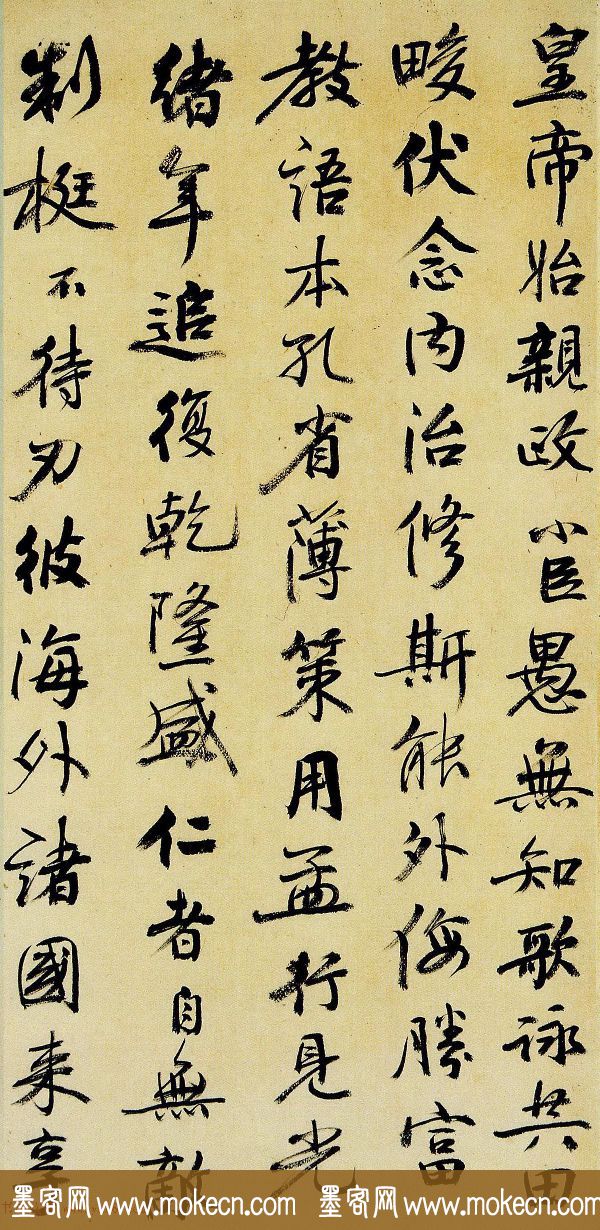 皇帝始親政小臣愚無知歌詠共田
畯伏念内治修斯能外侮勝富
教語本孔省薄策用益行見光
緒年追復乾隆盛仁者自無敵
制梃不待刃彼海外諸國来享
墨客网 www.mokecn.com 墨客网 www.mokecn.com